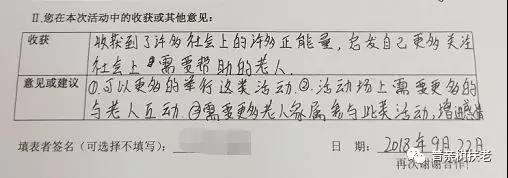 II.您在本次活动中的收获或其他意见：
收获
收获到了许多社会上的许多正能量，启发自己更多关注
社会上需要帮助的老人.
意见或建议
①.可以更多的举行这类活动.②.活动场上需要更多的
与老人互动.③需要更多老人家属参与此类活动,增进感情
填表者签名（可选择不填写）：
日 期： 2018年9月22日
再次谢谢合作！
育亲树扶老